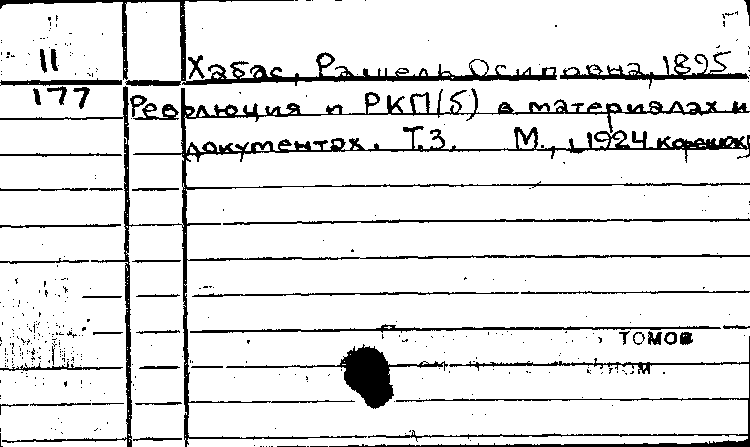 11
Хабас, Рашель Осиповна, 1895
177
Революция и РКП(б) в материалах и
документах. Т.3. М., [1924 корешок]
томов